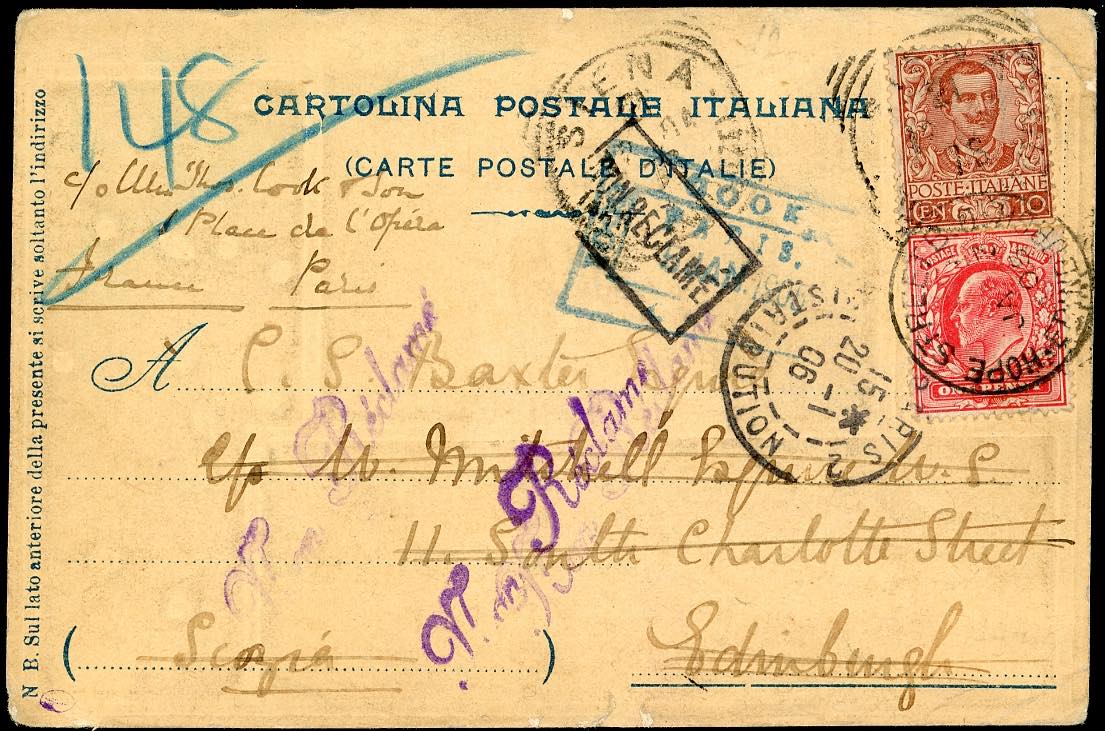 148
CARTOLINA POSTALE ITALIANA
(CARTE POSTALE D'ITALIE)
N B. Sul lato anteriore della presente si scrive soltanto l'indirizzo
c/o Thos. Cook & Son
1 Place de l'Opéra
France Paris
SIENA
COOK
PARIS.
NON RECLAMÉ
POSTE·ITALIANE
CEN 10
POSTAGE REVENUE
ONE PENNY
HOPE ST
JA 18 06
PARIS
DISTRIBUTION
15
20 -1
06
2
A C. S. Baxter Esqre
c/o W. Mitchell Esquire W. S.
11. South Charlotte Street
( Scozia ) Edinburgh
Non Réclamé
Non Réclamé